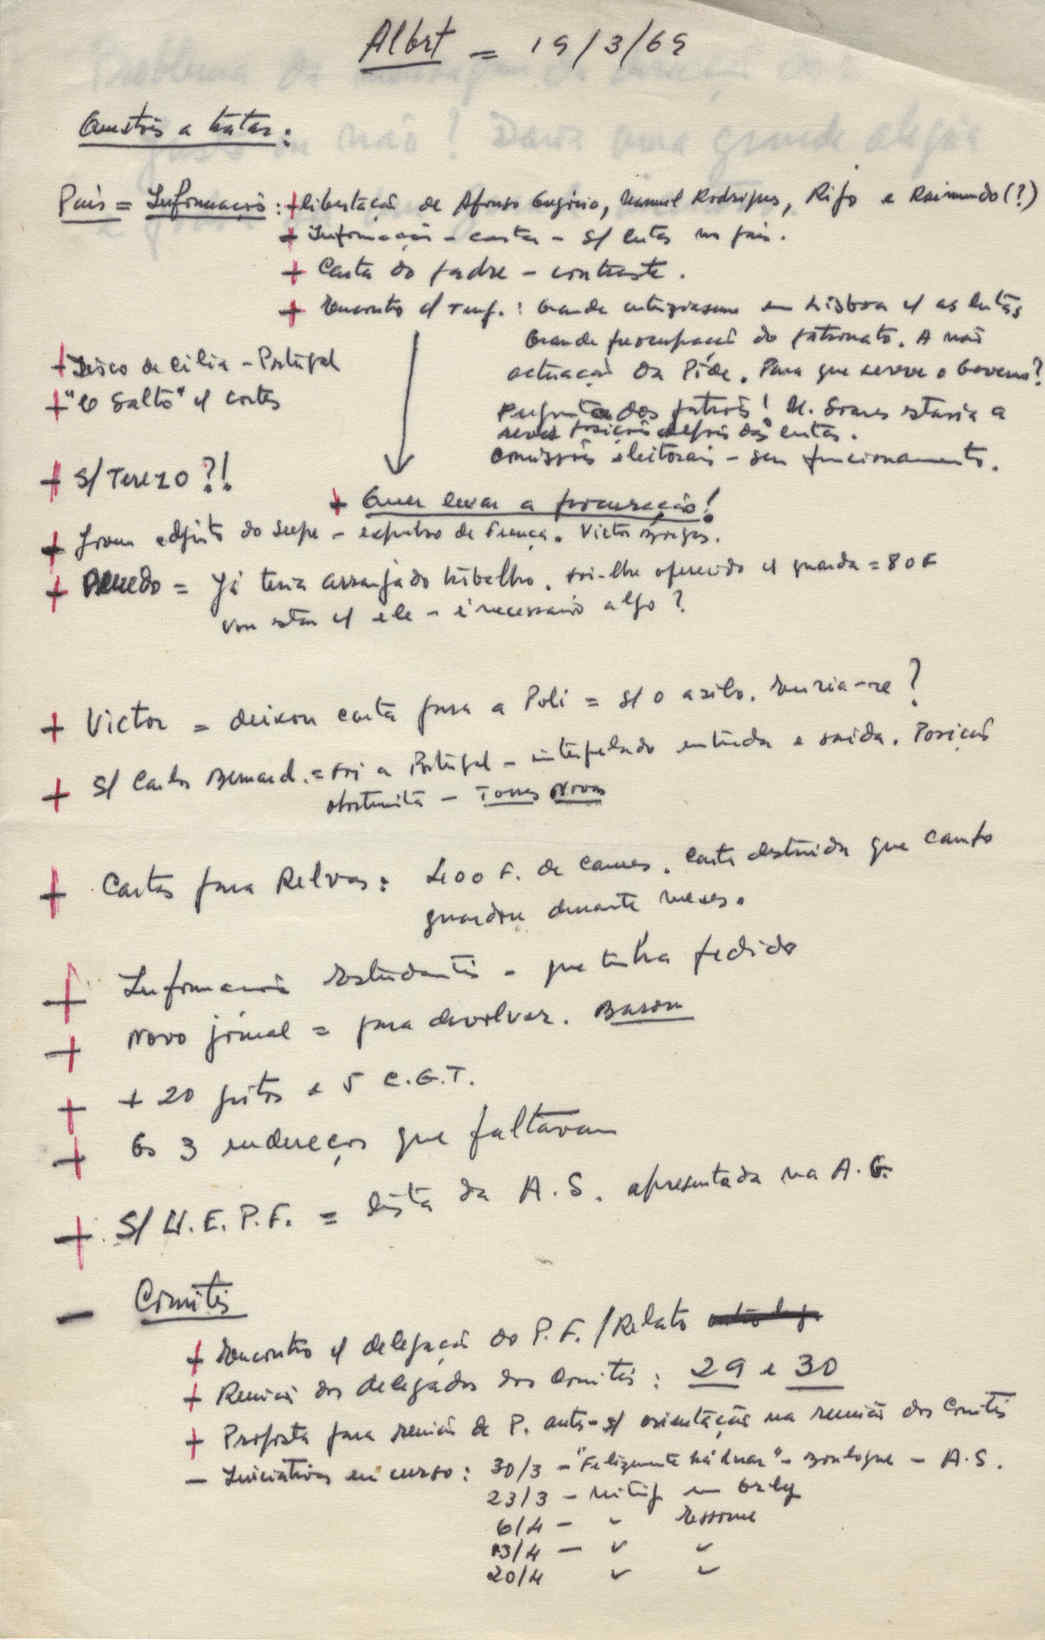 Albert = 19/3/69
Questões a tratar:
País = Informação: + libertação de Afonso Gregório, Manuel Rodrigues, Rifo e Raimundo (?)
+ Informação - cartas - s/ lutas no país.
+ Carta do padre - contraste.
+ Encontro c/ : Grande entusiasmo em Lisboa c/ as lutas
Grande preocupação do patronato. A não
actuação da Pide. Para que serve o Governo?
Pergunta dos patrões! M. Soares estaria a
rever posição depois das lutas.
Comissões eleitorais - seu funcionamento.
+ Disco de Cilia - Portugal
+ "O Salto" c/ cortes
+ S/ Terezo?!
+ Quer levar a procuração!
+ Jovem adjunto do - expulso de França. Victor Borges.
+ Penedo = Já teria arranjado trabalho. Foi-lhe oferecido c/ guarda = 80 F
vou estar c/ ele - é necessário algo?
+ Victor = deixou carta para a Poli = s/ o asilo. Envia-se?
+ S/ Carlos Bernard. = Foi a Portugal - interpelado entrada e saída. Posição
oportunista - Torres Novas
+ Cartas para Relvas: 400 F. de Cannes. Carta destruída que
guardou durante meses.
+ Informação Estudantes - que tinha pedido
+ Novo jornal = para devolver.
+ + 20 e 5 C.G.T.
+ Os 3 endereços que faltavam
+ S/ U.E.P.F. = lista da A.S. apresentada na A.G.
- Comités
+ Encontro c/ delegação do P.F. / Relato
+ Reunião dos delegados dos Comités: 29 e 30
+ Proposta para reunião de P. antes - s/ orientação na reunião dos Comités
- Iniciativas em curso: 30/3 - "Felizmente há luar" - Boulogne - A.S.
23/3 - em Orly
6/4 - " Essonne
13/4 - " "
20/4 " "